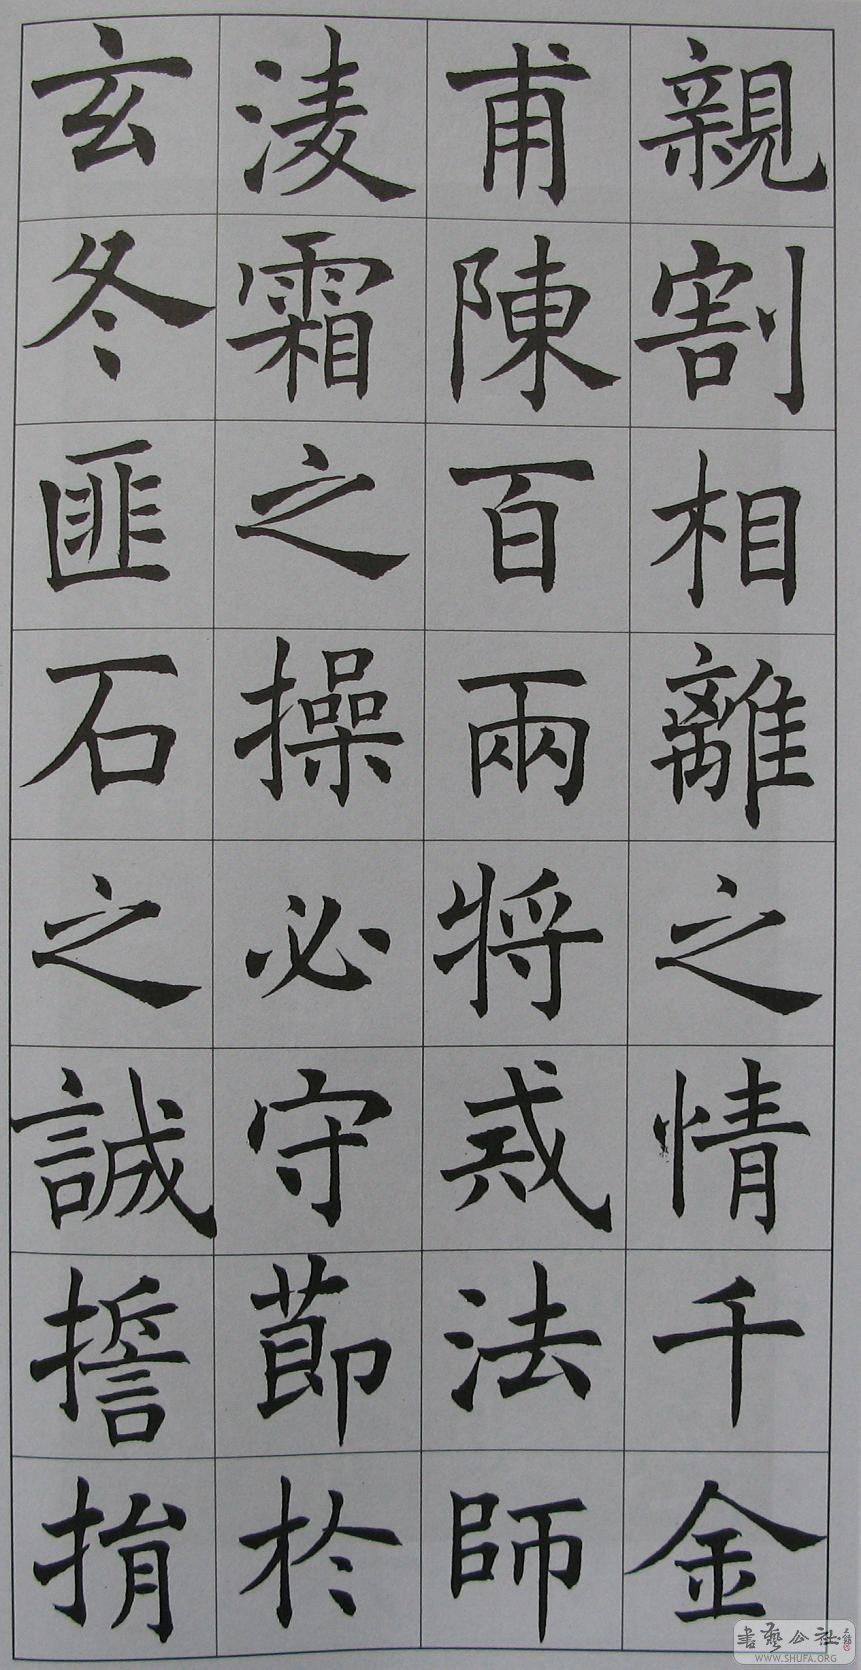 親割相離之情千金
甫陳百兩將戒法師
淩霜之操必守節於
玄冬匪石之誠誓捐
書藝公社
WWW.SHUFA.ORG